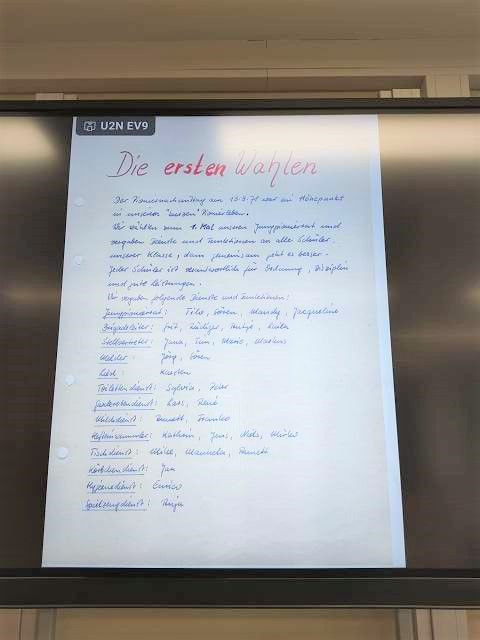 U2N EV9
Die ersten Wahlen
Der Pioniernachmittag am 10.9.71 war ein Höhepunkt
in unserem Pionierleben.
Wir wählten zum 1. Mal unseren Jungpionierrat und
vergaben Dienste und Funktionen an alle Schüler
unserer Klasse, denn gemeinsam geht es besser.
Jeder Schüler ist verantwortlich für Ordnung, Disziplin
und gute Leistungen.
Wir vergaben folgende Dienste und Funktionen:
Jungpionierrat: Silke, Sören, Mandy, Jacqueline
Brigadeleiter: Rüdiger, Antje
Stellvertreter: Jana, Mario, Markus
Melder: Jörg, Sören
Karsten
Toilettendienst: Sylvia, Peter
Garderobendienst: Lars, René
Milchdienst: Annett, Franko
Hefteinsammler: Kathrin, Jens, Mirko
Tischdienst: Manuela, Annett
Körbchendienst: Jan
Hygienedienst: Enrico
Spielzeugdienst: Anja